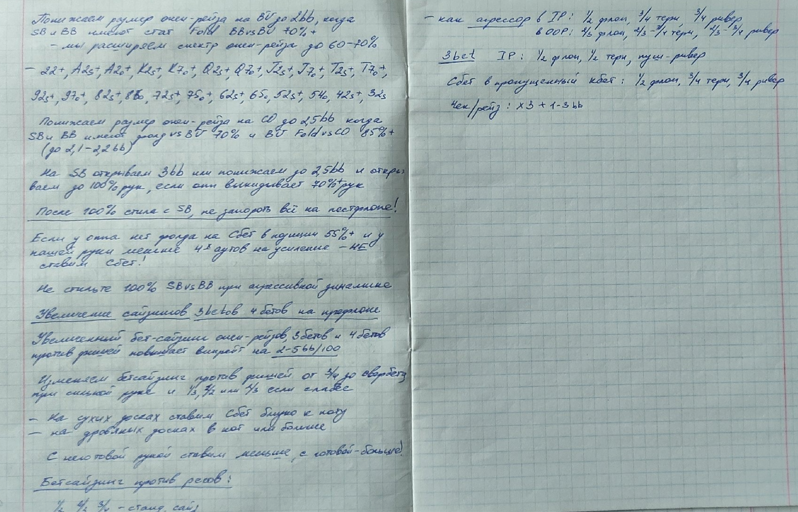 Понижаем размер опен-рейза на BU до 2bb, когда
SB и BB имеют стат Fold BBvsBU 70%+
- мы расширяем спектр опен-рейза до 60-70%
- 22+, A2s+, A2o+, K2s+, K7o+, Q2s+, Q7o+, J2s+, J7o+, T2s+, T7o+,
92s+, 97o+, 82s+, 86o, 72s+, 75o+, 62s+, 65, 52s+, 54, 42s+, 32s
Понижаем размер опен-рейза на CO до 2,5bb когда
SB и BB имеют фолд vs BU 70% и BU FoldvsCO 85%+
(до 2,1-2,2bb)
На SB открываем 3bb или понижаем до 2,5bb и откры-
ваем до 100% рук, если они выкидывает 70%+ рук
После 100% стила с SB, не запороть всё на постфлопе!
Если у оппа нет фолда на Сбет в позиции 55%+ и у
нашей руки меньше 4х аутов на усиление - НЕ
ставим Сбет!
Не стильте 100% SBvsBB при агрессивной динамике
Увеличение сайзингов 3betов 4бетов на префлопе
Увеличенный бет-сайзинг опен-рейзов, 3бетов и 4бетов
против фишей повышает винрейт на 2-5bb/100
Изменяем бетсайзинг против фишей от 3/4 до овербета
при сильной руке и 1/3, 1/2 или 2/3 если слабее
- На сухих досках ставим Сбет близко к поту
- на дровяных досках в пот или больше
С неготовой рукой ставим меньше, с готовой - больше!
Бетсайзинг против регов:
1/2 2/3 3/4 - станд. сайз
- как агрессор в IP: 1/2 флоп, 3/4 терн, 3/4 ривер
в OOP: 2/3 флоп, 2/3-3/4 терн, 2/3-3/4 ривер
3bet IP: 1/2 флоп, 1/2 терн, пуш-ривер
Сбет в пропущенный кбет: 1/2 флоп, 3/4 терн, 3/4 ривер
Чек/рейз: x3 + 1-3bb